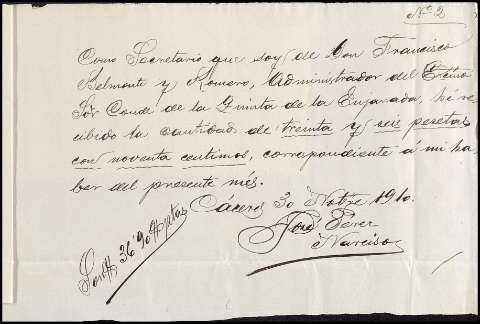 Nº 2
Como Secretario que soy de Don Francisco
Belmonte y Romero, Administrador del Excmo
Sor Conde de la Quinta de la Enjarada, hé re
cibido la cantidad de treinta y seis pesetas
con noventa centimos, correspondiente á mi ha
ber del presente més.
Cáceres 30 Nobre 1910.
José Perez
Narciso
Son # 36'90 # ptas